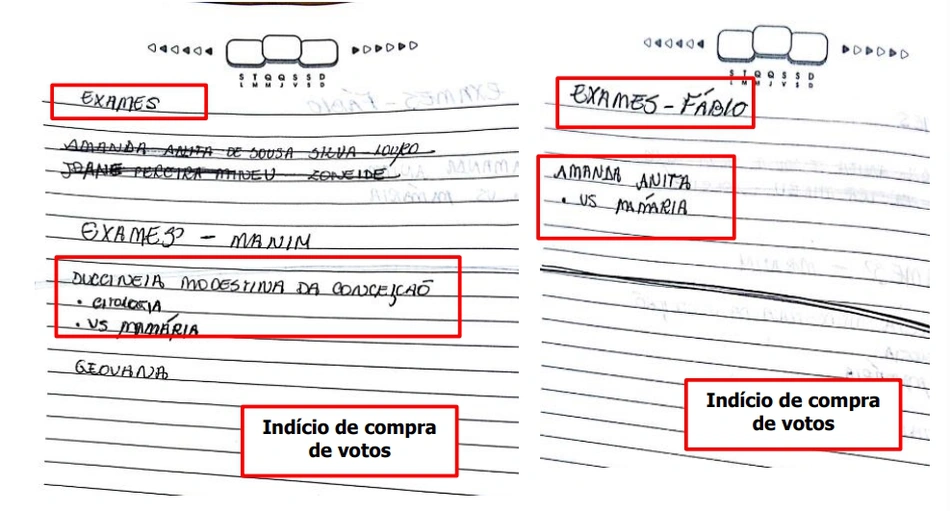 S T Q Q S S D
L M M J V S D
EXAMES
AMANDA ANITA DE SOUSA SILVA LOURO
JOANE PEREIRA MINEU ZONEIDE
EXAMES - MANIM
DUCCINEIA MODESTINA DA CONCEIÇÃO
• CITOLOGIA
• US MAMÁRIA
GEOVANIA
Indício de compra
de votos
S T Q Q S S D
L M M J V S D
EXAMES - FÁBIO
AMANDA ANITA
• US MAMÁRIA
Indício de compra
de votos